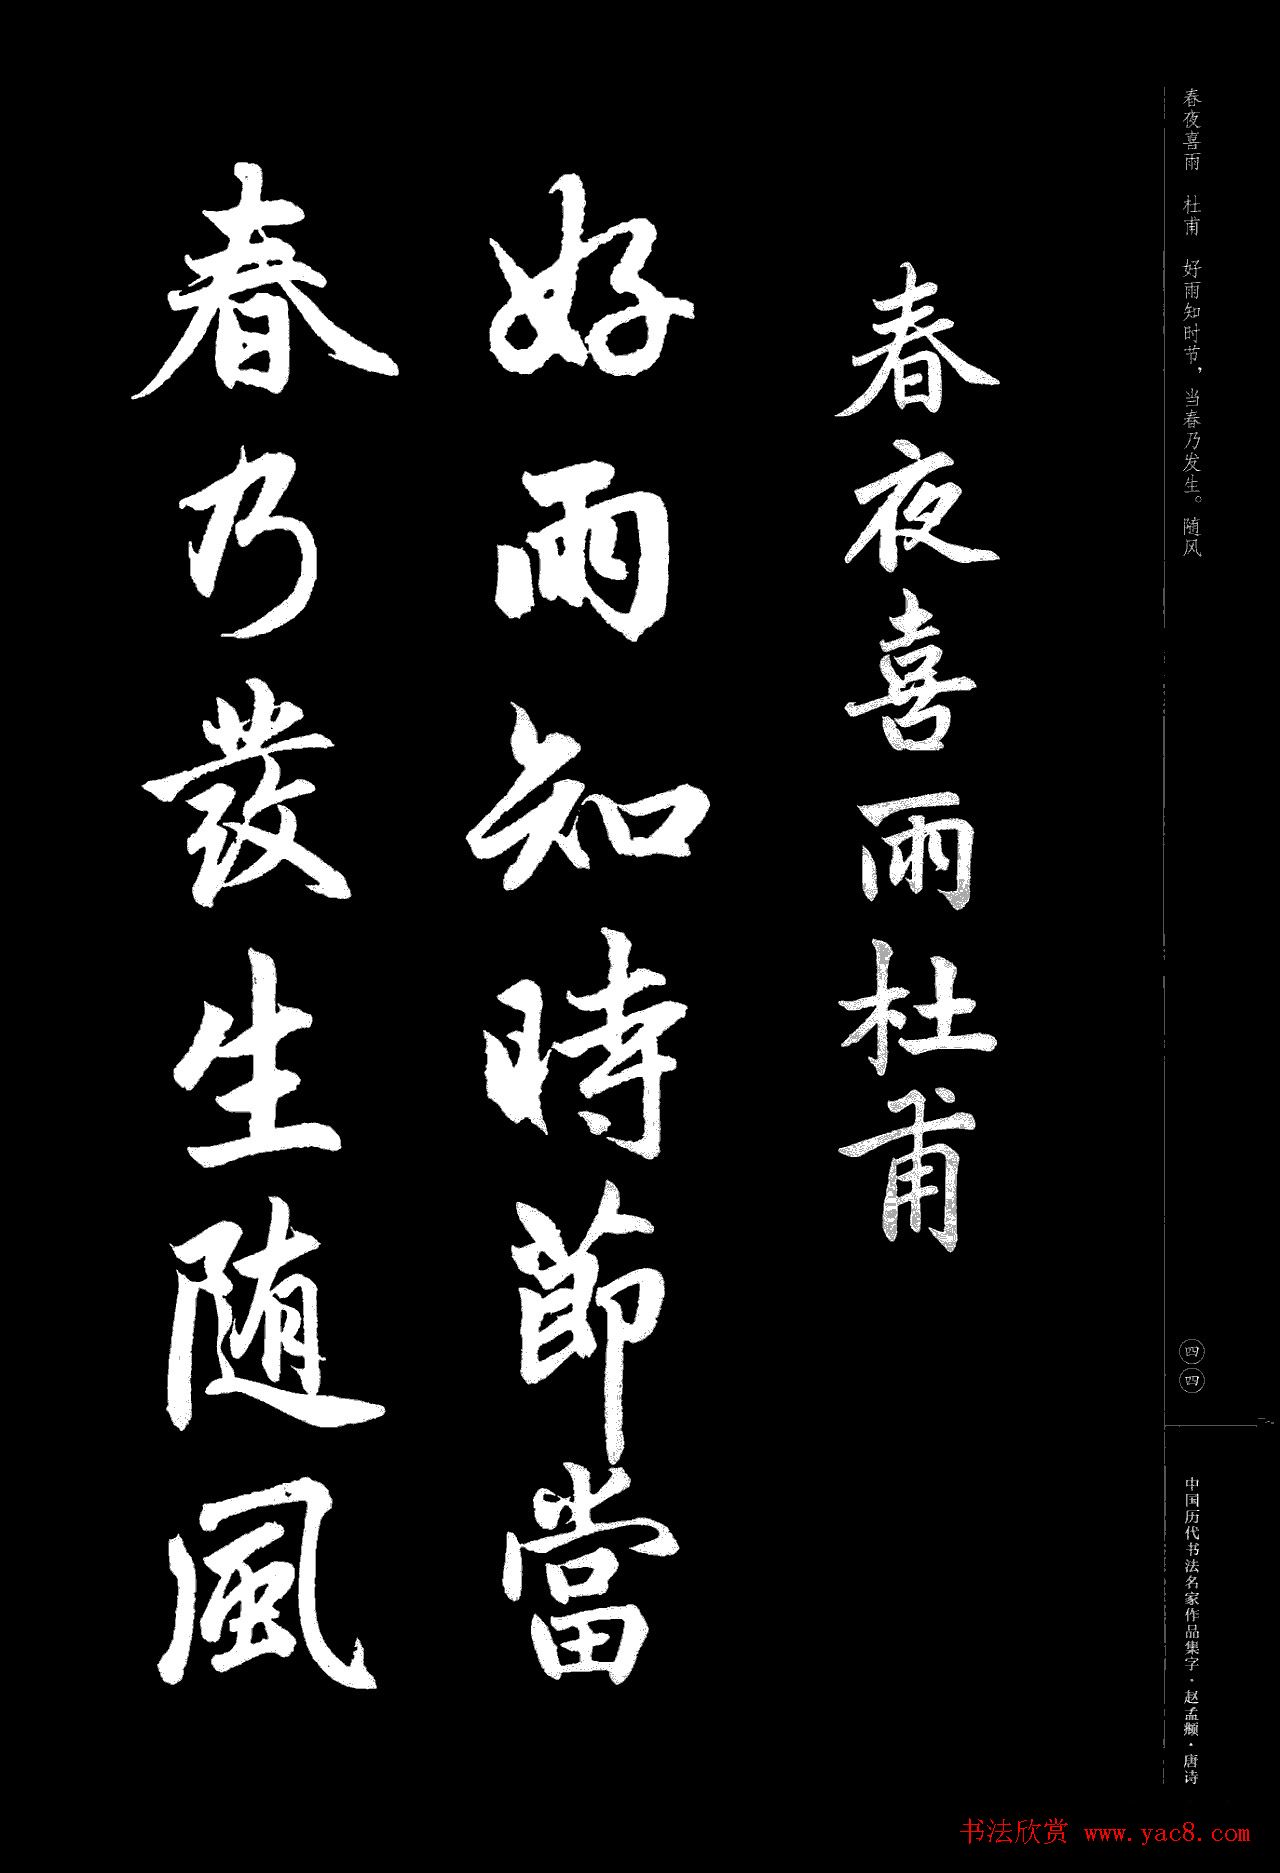 春夜喜雨　杜甫　好雨知时节，当春乃发生。随风
春夜喜雨杜甫
好雨知時節當
春乃發生随風
四四
中国历代书法名家作品集字·赵孟頫·唐诗
书法欣赏 www.yac8.com